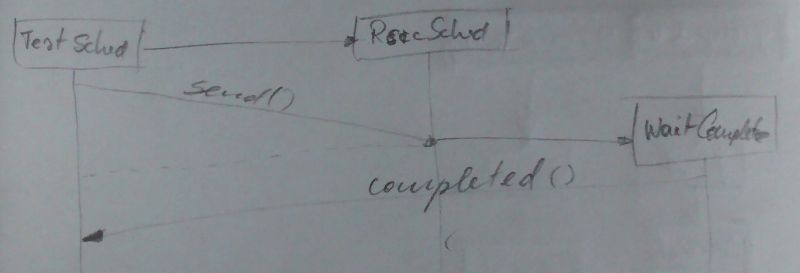 Test Sched
send()
WaitComplete
completed()